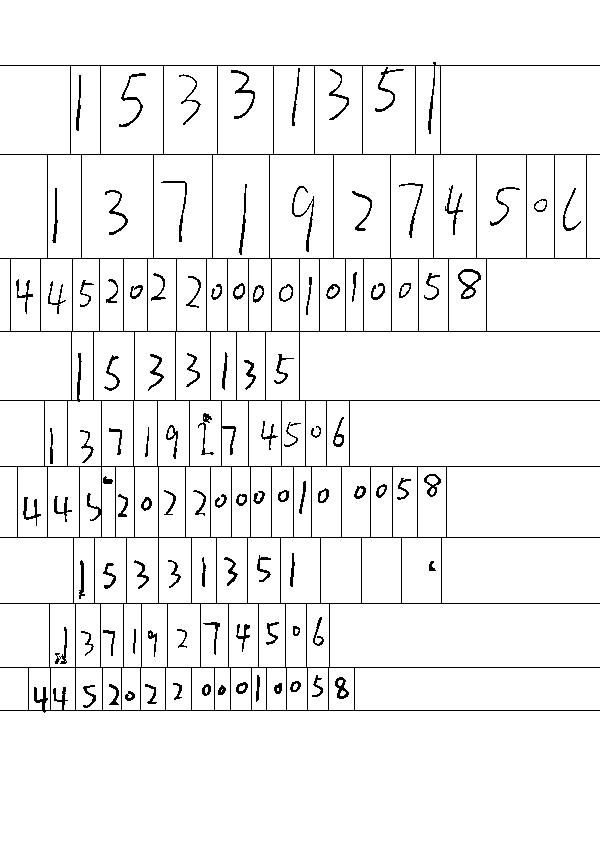 15331351
13719274506
445202200001010058
1533135
13719274506
44520220000100058
15331351
13719274506
445202200010058